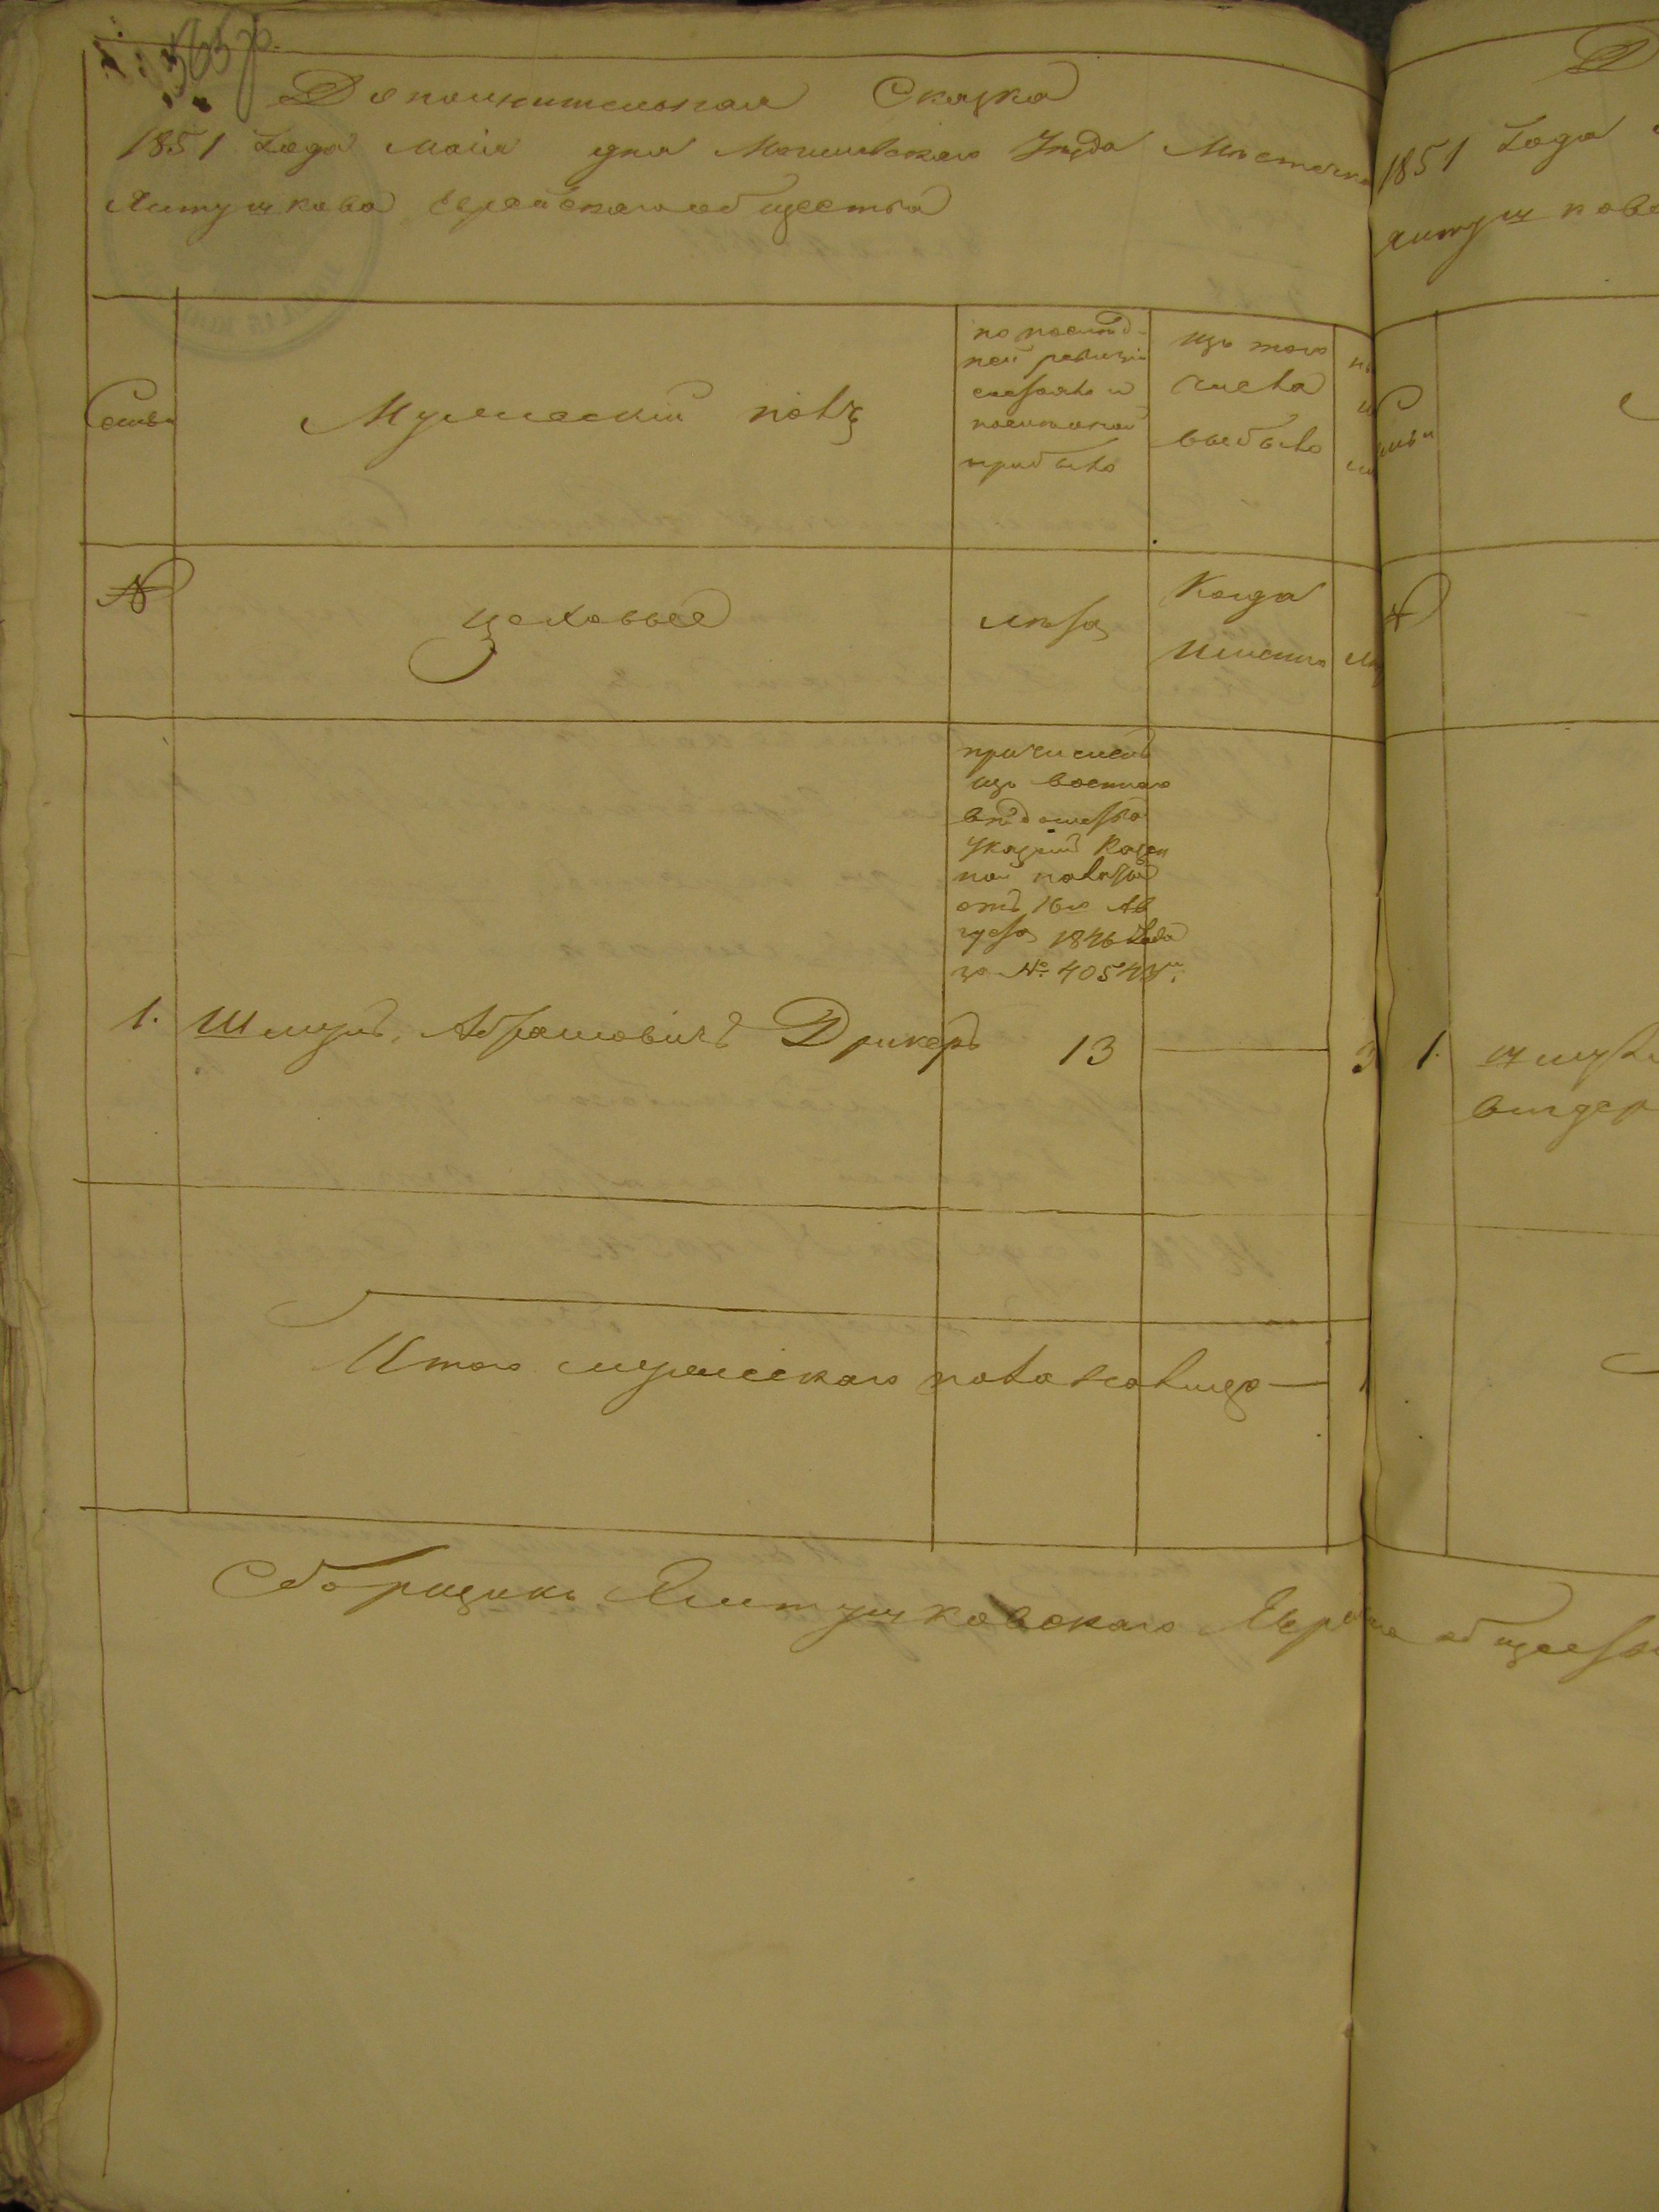 Дополнительная Сказка
1851 Года Маія дня Могилевскаго Уезда Местечка
Ялтушкова Еврейскаго общества
Семьи
Мужескій полъ
по послѣд-
ней ревизіи
состояло и
после оной
прибыло
Изъ того
числа
выбыло
№
цеховые
лѣта
Когда
Именно
причисленъ
изъ военнаго
вѣдомства
указомъ Казен
ной палаты
отъ 16го Ав
густа 1846 Года
за № 40543мъ
1. Шмуль Абрамовичъ Дрикеръ 13
Итого мужескаго пола налицо — 1
Сборщикъ Ялтушковскаго Еврейскаго общества
1851 Года
Ялтушкова
Семьи
№
1.